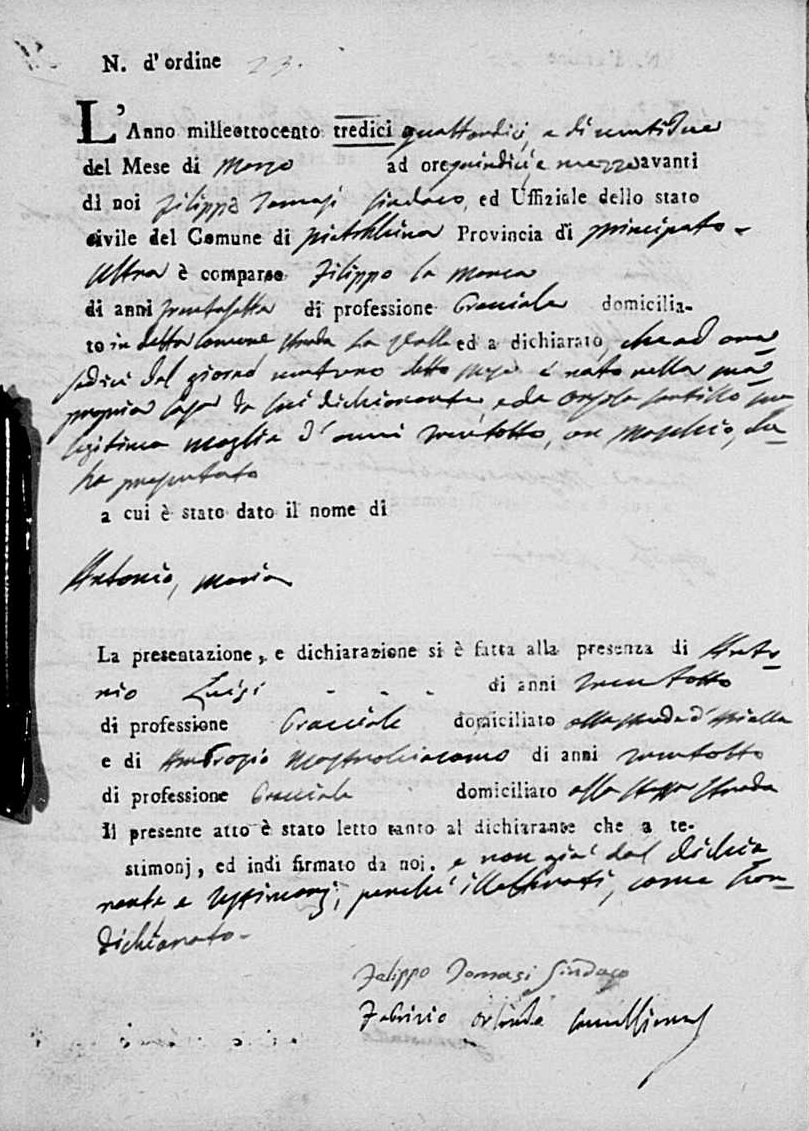 N. d'ordine 23.
L'Anno milleottocento tredici quattordici, e di ventidue
del Mese di Marzo ad ore quindici, e mezzo avanti
di noi Filippo Tomasi Sindaco, ed Uffiziale dello stato
civile del Comune di Pietrelcina Provincia di Principato
Ultra è comparso Filippo la Marca
di anni trentasette di professione Bracciale domicilia-
to in detto Comune strada La Valle ed a dichiarato, che ad ore
sedici del giorno ventuno detto mese è nato nella sua
propria casa da lui dichiarante, e da Orsola Santillo sua
legitima moglie d'anni trentotto, un Maschio, che
ha presentato
a cui è stato dato il nome di
Antonio, Maria
La presentazione, e dichiarazione si è fatta alla presenza di Anto-
nio Luigi - - - di anni trentotto
di professione Bracciale domiciliato alla strada
e di Ambrosio Mastrogiacomo di anni trentotto
di professione Bracciale domiciliato alla stessa strada
Il presente atto è stato letto tanto al dichiarante che a te-
stimonj, ed indi firmato da noi. e non già dal dichia-
rante e testimonj, perché illetterati, come han-
dichiarato.
Felippo Tomasi Sindaco
Fabrizio Orlando Cancelliere